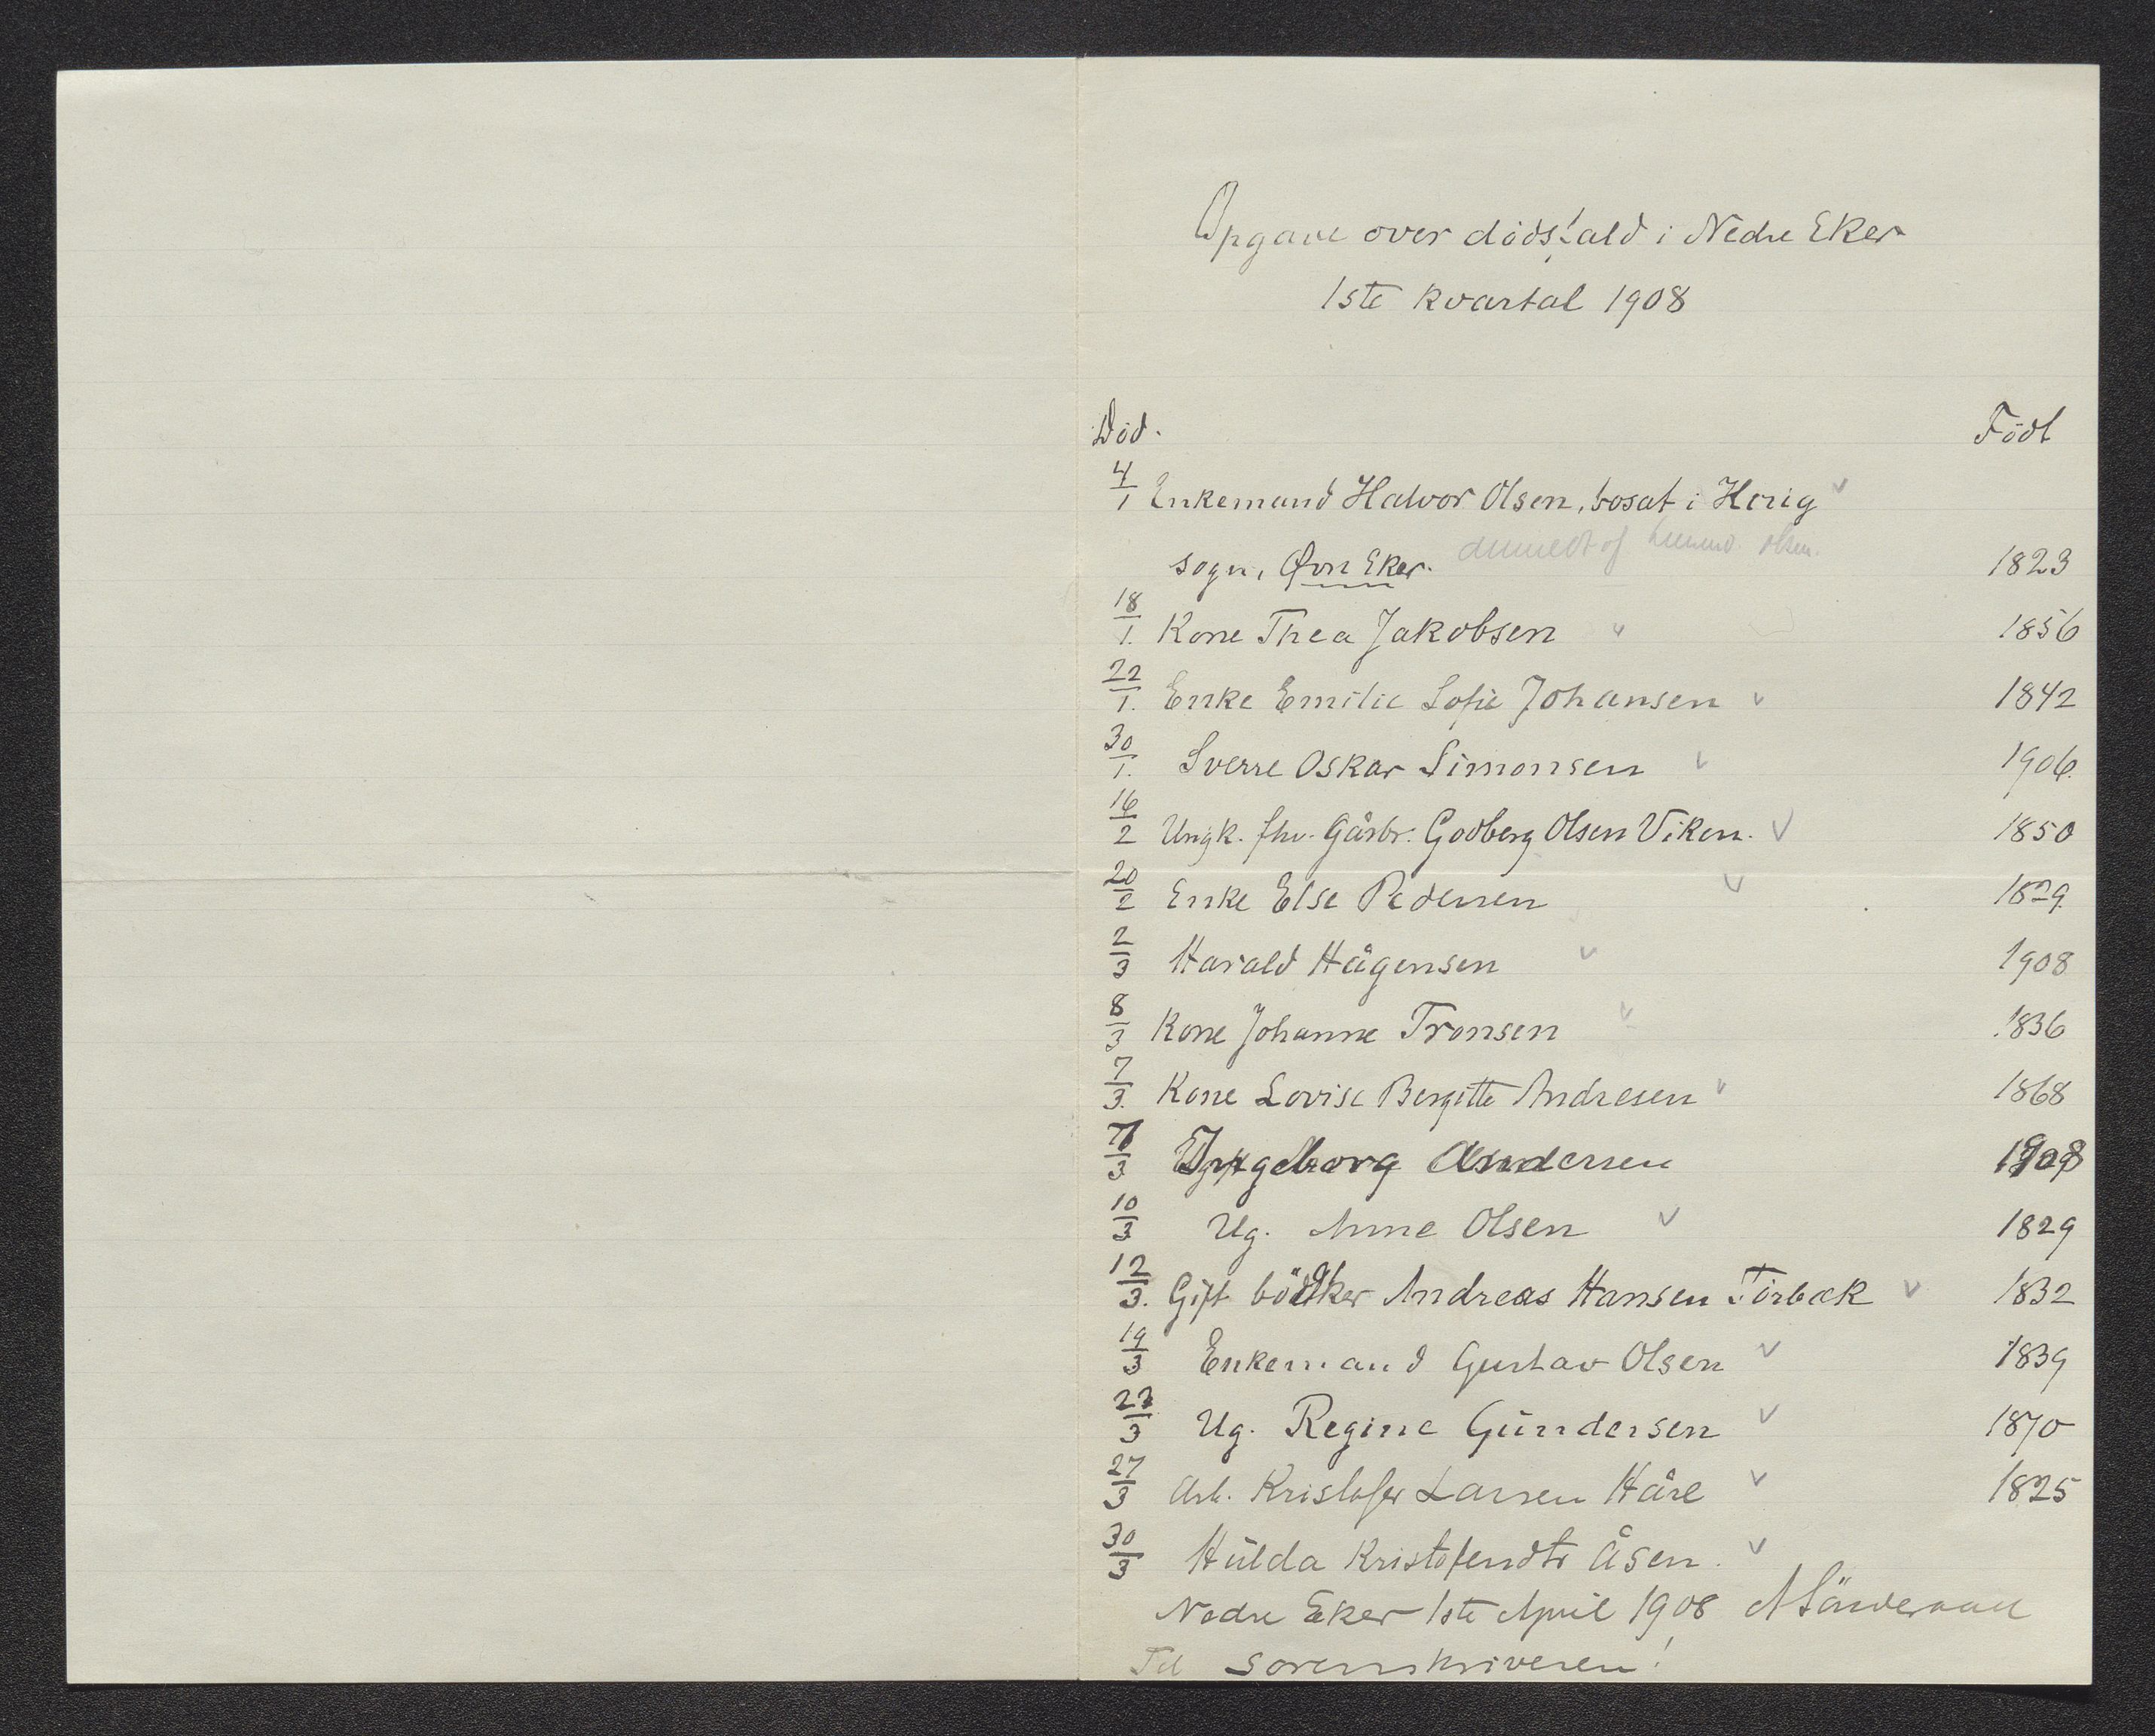 Opgave over dödsfald i Nedre Eker
1ste kvartal 1908
Död. Födt
4/1 Enkemand Halvor Olsen, bosat i Herig
sogn, Øvre Eker. anmeldt af Olsen. 1823
18/1. Kone Thea Jakobsen 1856
22/1. Enke Emilie Sofie Johansen 1842
30/1. Sverre Oskar Simonsen 1906.
16/2 Ungk. fhv. Gårbr. Godberg Olsen Viken. 1850
20/2 Enke Else Pedersen 1829
2/3 Harald Hågensen 1908
8/3 Kone Johanne Tronsen 1836
7/3. Kone Lovise Bergitte Andresen 1868
3 Ingeborg Andersen 1908
10/3 Ug. Anne Olsen 1829
12/3. Gift bödker Andreas Hansen Törbek 1832
19/3 Enkemand Gustav Olsen 1839
3 Ug. Regine Gundersen 1870
27/3 Arb. Kristofer Larsen Håre 1825
30/3 Hulda Kristofersdtr Åsen.
Nedre Eker 1ste April 1908
Til Sorenskriveren!